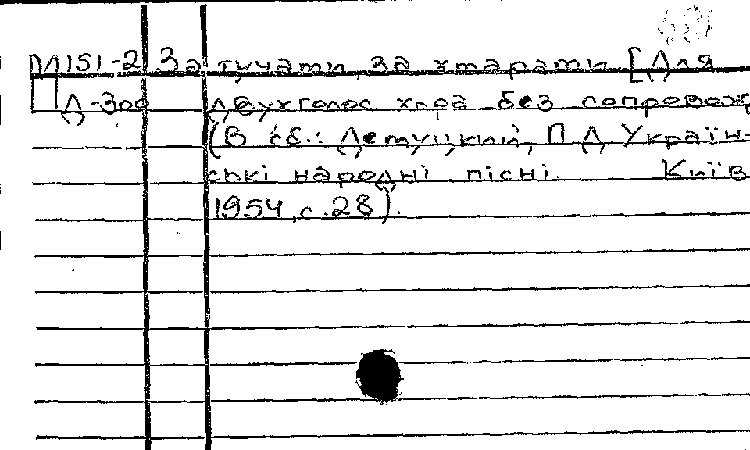 М151-2 За тучами, за хмарами [Для
Д-300 двухголос хора без сопровож
(В сб.: Летуцкий, П Д Україн-
ські народні пісні Київ
1954, с.28).